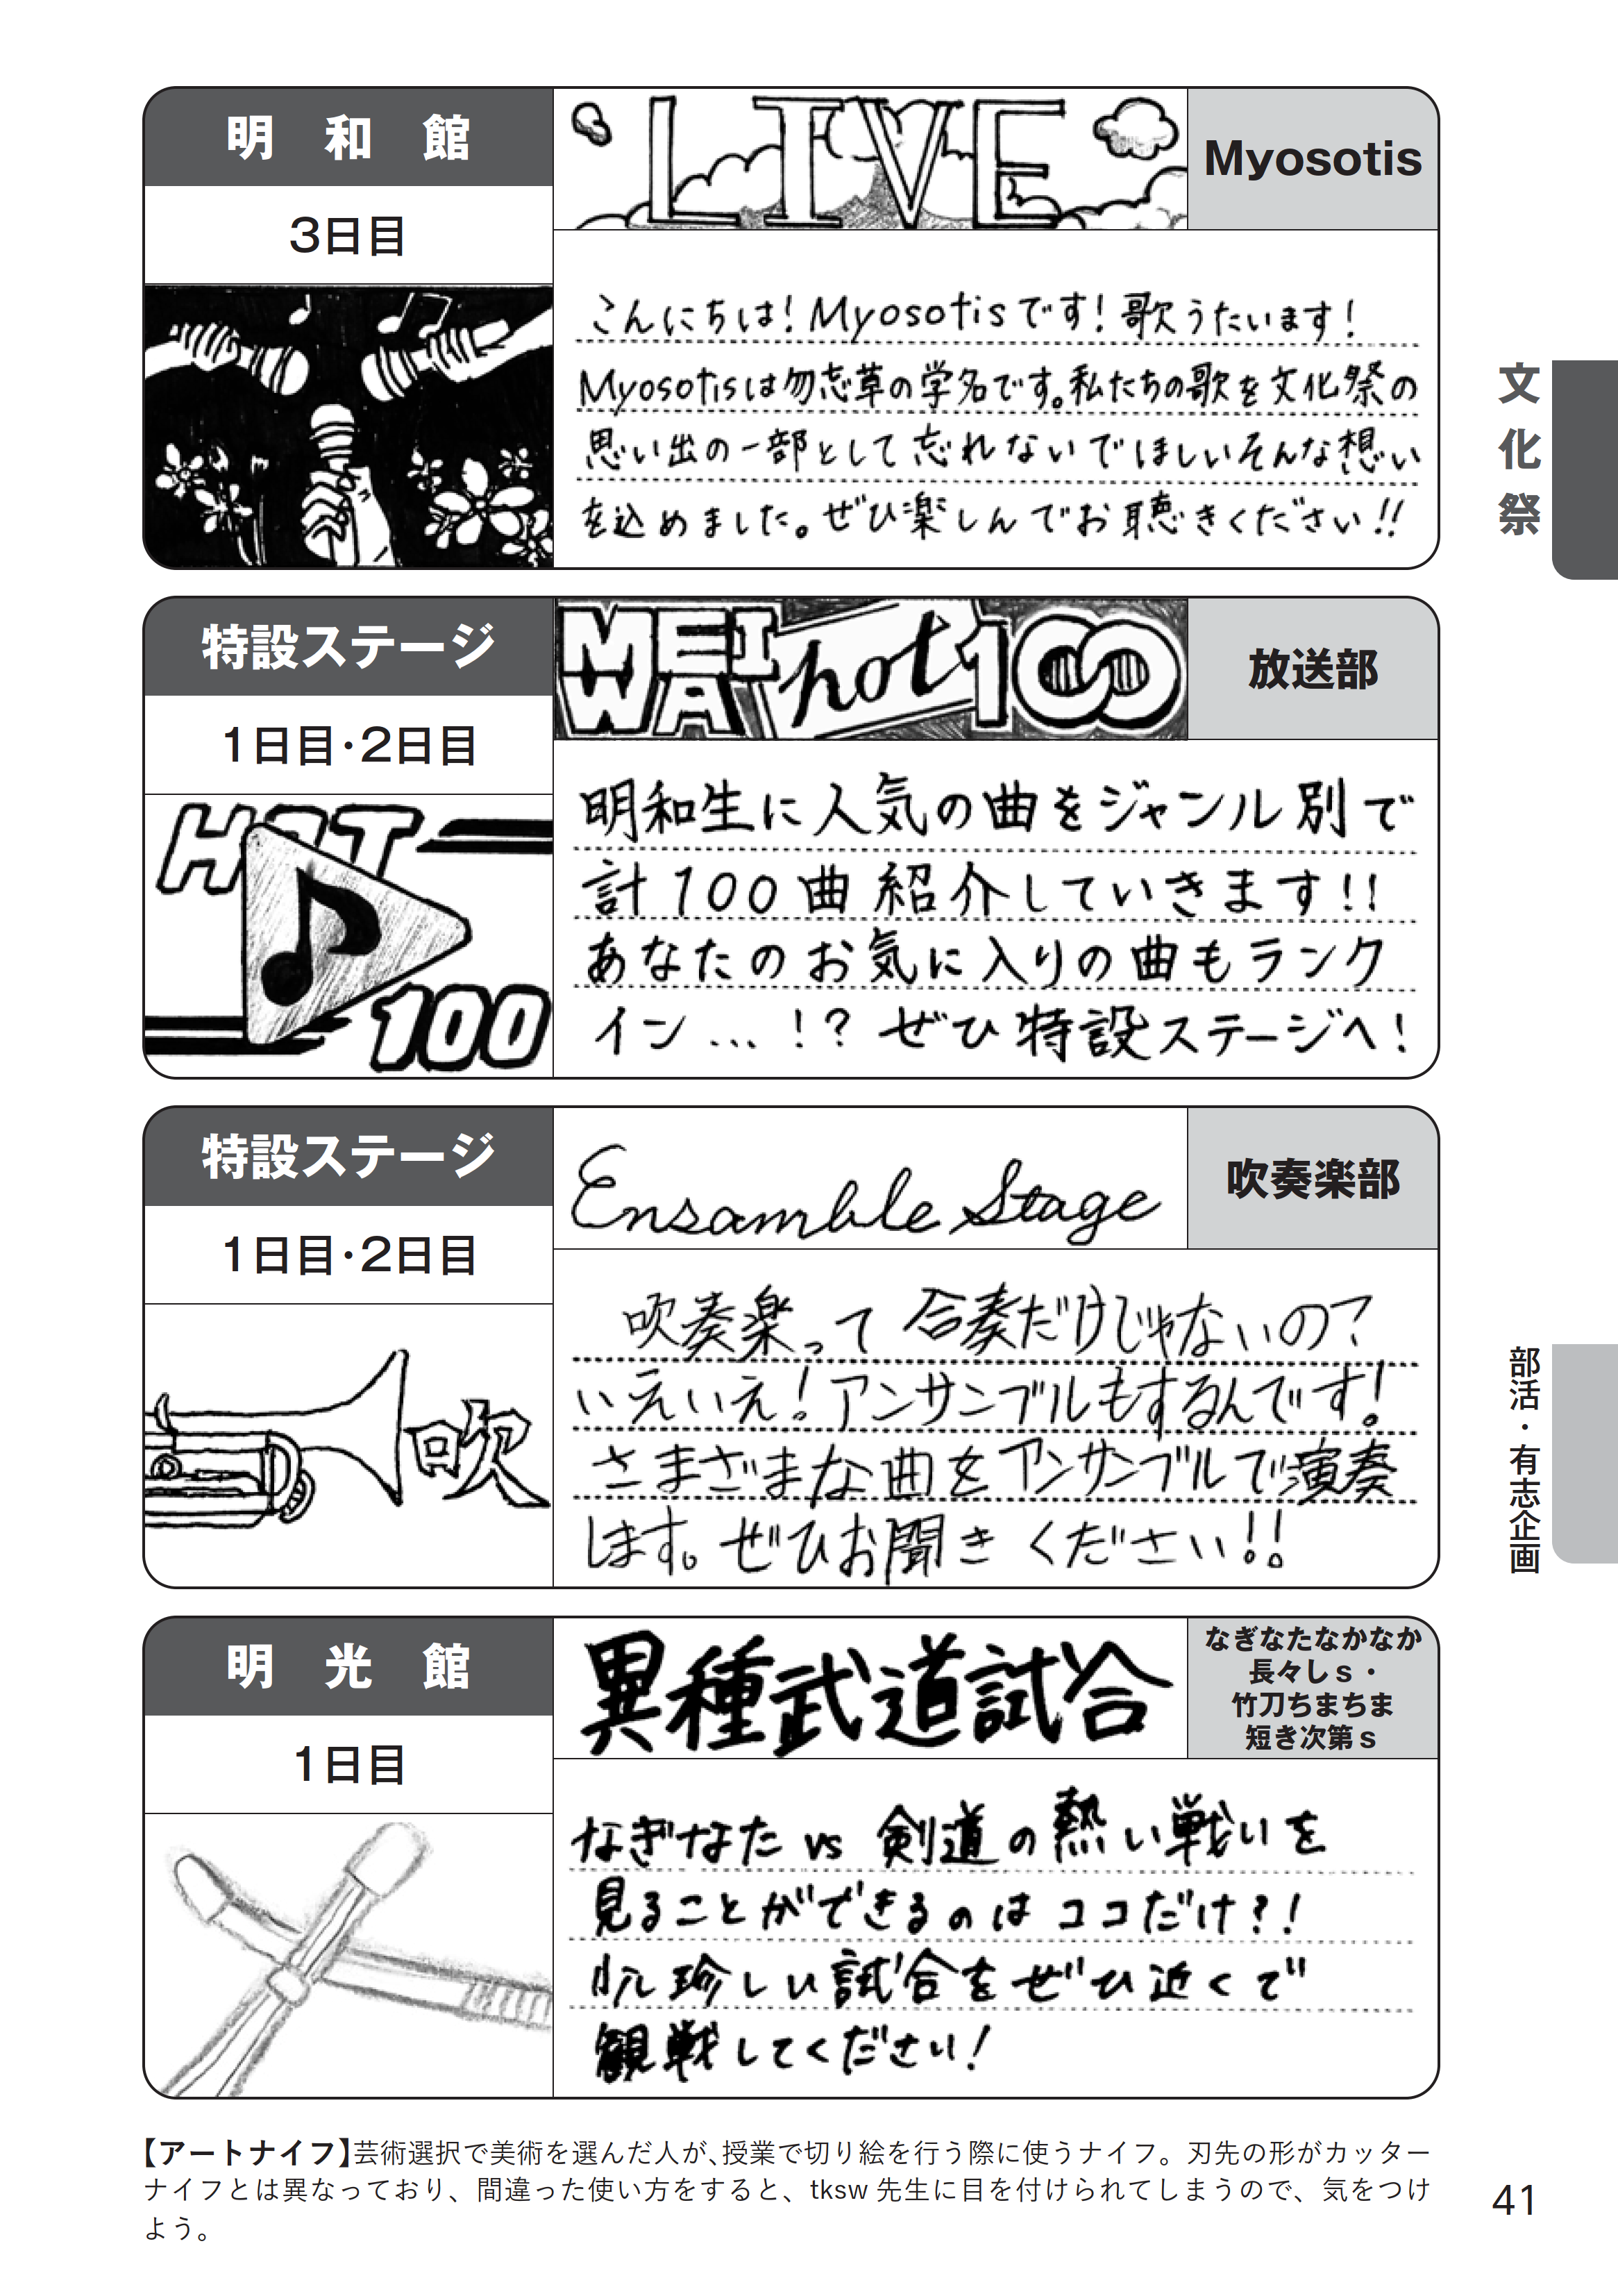 明和館
3日目
LIVE
Myosotis
こんにちは!Myosotisです!歌うたいます!
Myosotisは勿忘草の学名です。私たちの歌を文化祭の
思い出の一部として忘れないでほしいそんな想い
を込めました。ぜひ楽しんでお聴きください!!
特設ステージ
1日目・2日目
HOT
100
MEIWA hot 100
放送部
明和生に人気の曲をジャンル別で
計100曲紹介していきます!!
あなたのお気に入りの曲もランク
イン…!?ぜひ特設ステージへ!
特設ステージ
1日目・2日目
吹
Ensamble Stage
吹奏楽部
吹奏楽って合奏だけじゃないの?
いえいえ!アンサンブルもするんです!
さまざまな曲をアンサンブルで演奏
します。ぜひお聞きください!!
明光館
1日目
異種武道試合
なぎなたなかなか
長々しs・
竹刀ちまちま
短き次第s
なぎなた vs 剣道の熱い戦いを
見ることができるのはココだけ?!
珍しい試合をぜひ近くで
観戦してください!
文化祭
部活・有志企画
【アートナイフ】芸術選択で美術を選んだ人が、授業で切り絵を行う際に使うナイフ。刃先の形がカッター
ナイフとは異なっており、間違った使い方をすると、tksw先生に目を付けられてしまうので、気をつけ
よう。
41